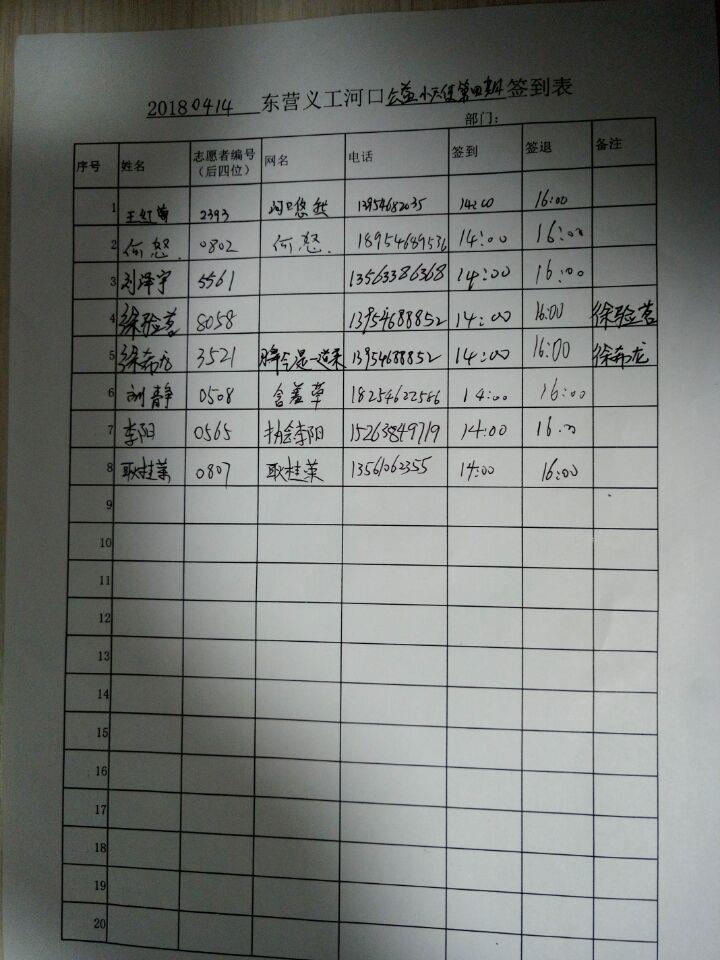 20180414 东营义工河口公益小天使第四期签到表
部门:
序号 姓名 志愿者编号（后四位） 网名 电话 签到 签退 备注
1 2393 河口悠然 13954682035 14:00 16:00
2 何怒. 0802 何怒. 18954689536 14:00 16:00
3 刘泽宇 5561 13563386368 14:00 16:00
4 徐 8058 13954688852 14:00 16:00 徐
5 徐希龙 3521 13954688852 14:00 16:00 徐希龙
6 刘静 0508 含羞草 18254622586 14:00 16:00
7 李阳 0565 协会李阳 15263849719 14:00 16:00
8 耿桂荣 0807 耿桂荣 13561062355 14:00 16:00
9
10
11
12
13
14
15
16
17
18
19
20